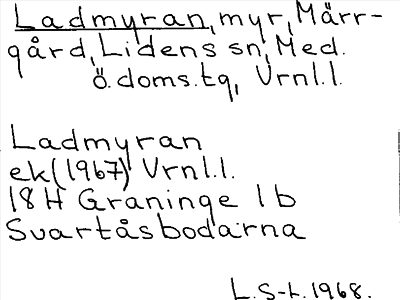 Ladmyran, myr, Märr-
gård, Lidens sn, Med.
ö.doms.tg, Vrnl.l.
Ladmyran
ek(1967) Vrnl.l.
18H Graninge 1b
Svartåsbodarna
L.S-L.1968.